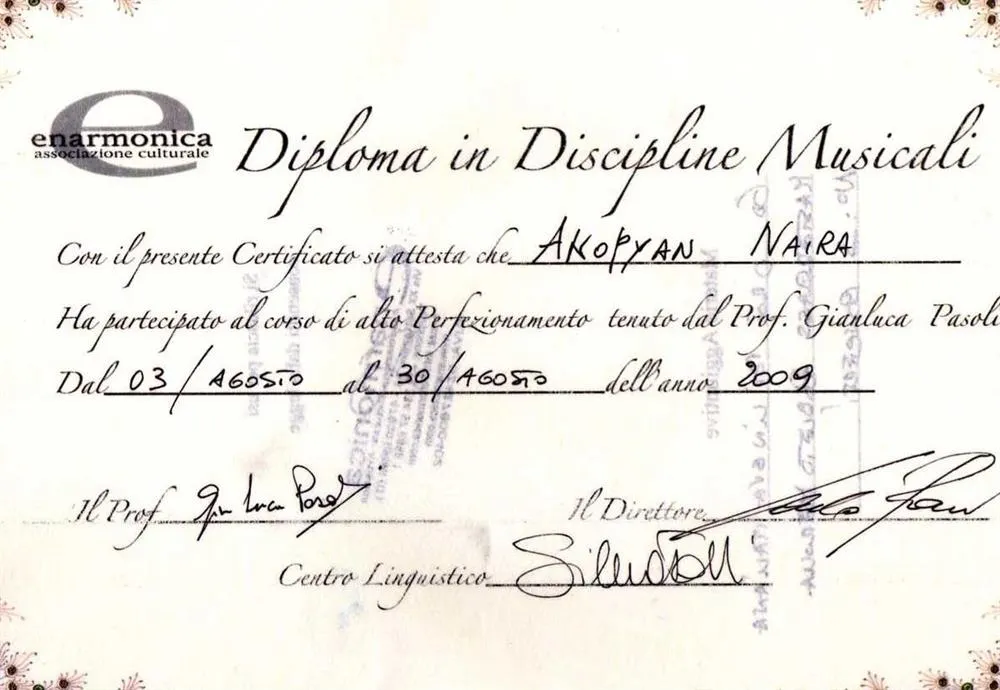 enarmonica
associazione culturale
Diploma in Discipline Musicali
Con il presente Certificato si attesta che AKOPYAN NAIRA
Ha partecipato al corso di alto Perfezionamento tenuto dal Prof. Gianluca Pasoli
Dal 03 / AGOSTO al 30 / AGOSTO dell'anno 2009
Il Prof. Gian Luca Pasoli
Il Direttore
Centro Linguistico